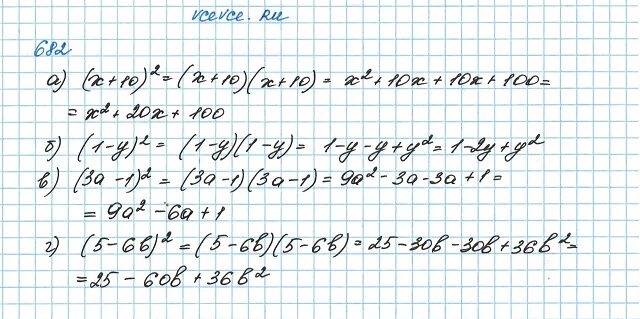 vcevce.ru
682
а) (x+10)² = (x+10)(x+10) = x²+10x+10x+100=
= x²+20x+100
б) (1-y)² = (1-y)(1-y) = 1-y-y+y² = 1-2y+y²
в) (3a-1)² = (3a-1)(3a-1) = 9a²-3a-3a+1 =
= 9a²-6a+1
г) (5-6b)² = (5-6b)(5-6b) = 25-30b-30b+36b²=
= 25-60b+36b²